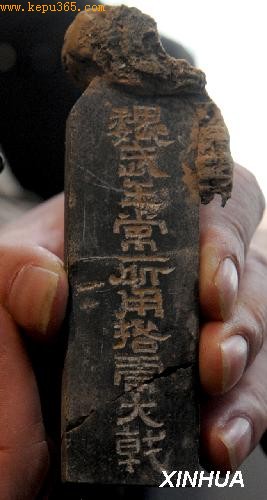 www.kepu365.com
魏武王常所用挌虎大戟
XINHUA